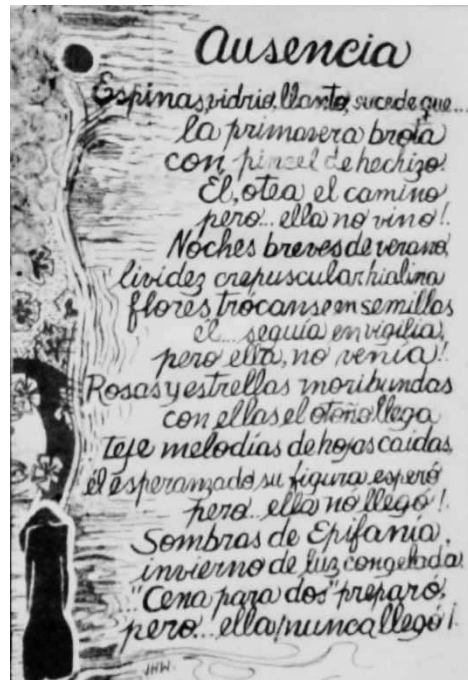 Ausencia
Espinas, vidrio, llanto, sucede que...
la primavera brota
con pincel de hechizo.
Él, otea el camino
pero... ella no vino!.
Noches breves de verano,
lividez crepuscular hialina
flores, trócanse en semillas
él... seguía en vigilia,
pero ella, no venía!.
Rosas y estrellas moribundas
con ellas el otoño llega
Teje melodías de hojas caídas,
él esperanzado su figura esperó
pero... ella no llegó!.
Sombras de Epifanía,
invierno de luz congelada.
"Cena para dos" preparó,
pero... ella nunca llegó!.
JHW.